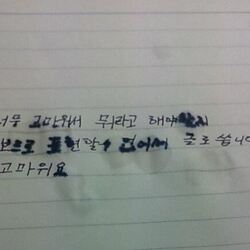 너무 고마워서 뭐라고 해야할지
표현할수 없어서 글로 씁니다
고마워요